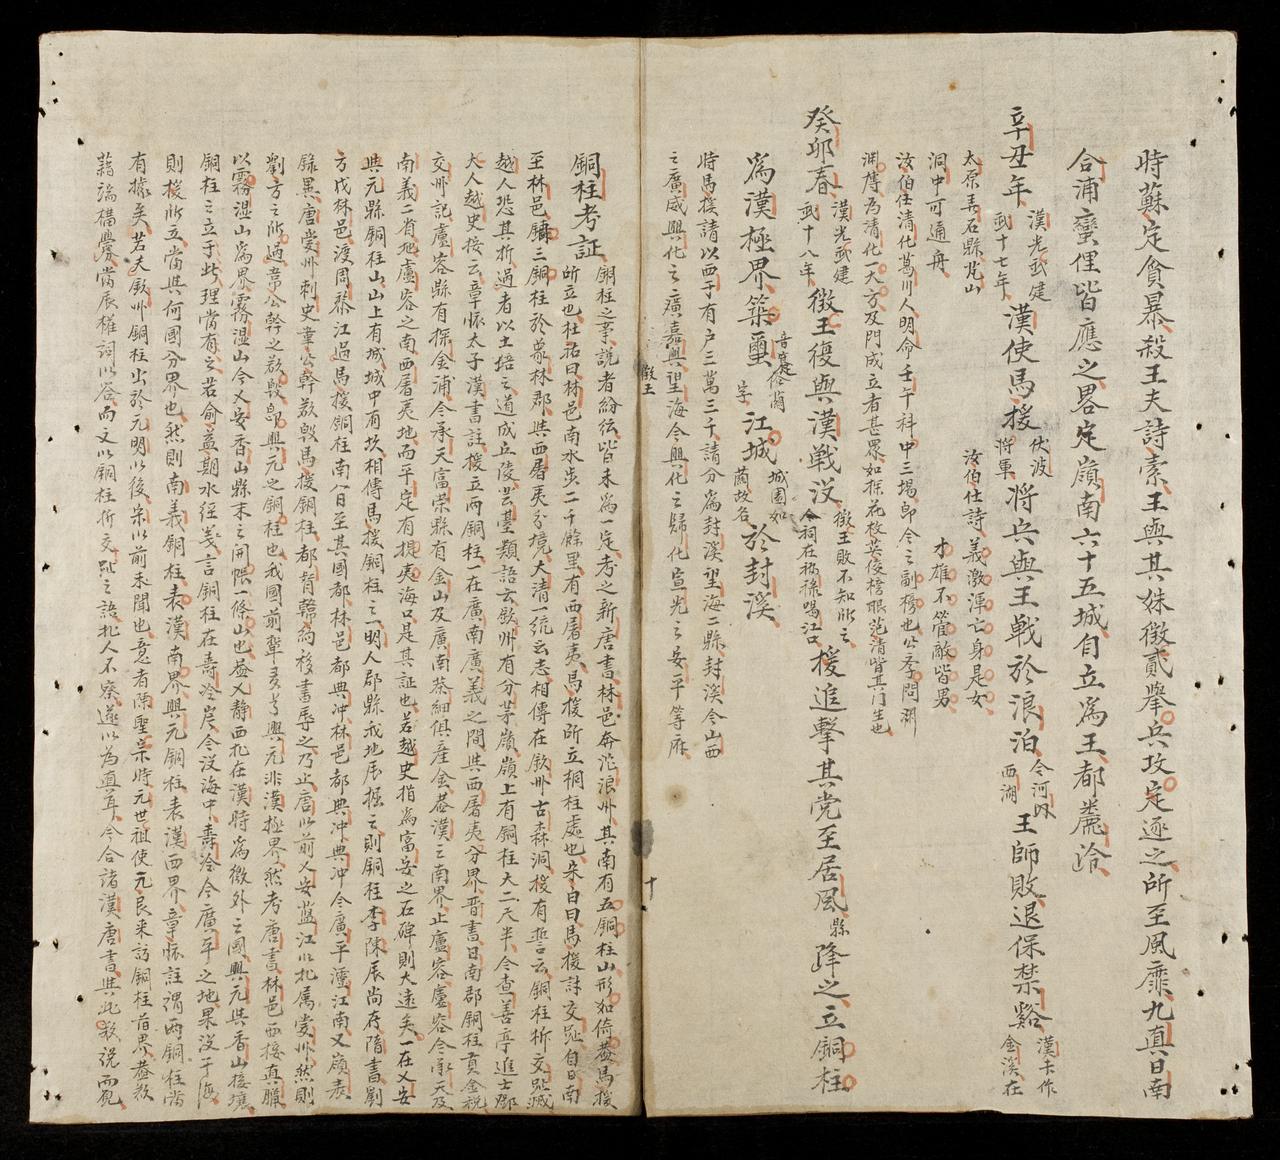 時蘇定貪暴殺王夫詩索王與其姝徵貳舉兵攻定逐之所至風靡九真日南
合浦蠻俚皆應之畧定嶺南六十五城自立爲王都麊泠
辛丑年漢光武建武十七年漢使馬援伏波將軍將兵與王戰於浪泊今河内西湖王師敗退保禁谿漢士作金溪在
太原弄石縣 山 汝伯仕詩義激渾亡身是女
洞中可通舟 才雄不管敵皆男
汝伯仕清化葛川人明命壬午科中三場即今之副榜也公季問湖
湖 爲清化一大方及門成立者甚衆如探花枚英俊榜眼范清皆其门生也
癸卯春漢光武建武十八年徵王復與漢戰没徵王敗不知所之今祠在福祿喝江口援追擊其党至居風縣降之立銅柱
爲漢極界築璽音 俗 字江城城圓如繭故名於封溪
時馬援請以西于有户三萬三千請分爲封溪望海二縣封溪今山西
之廣威興化之 嘉興望海今興化之歸化宣光之安平等府
徵王
十
銅柱考証銅柱之事説者紛紜皆未爲一定考之新唐書林邑奔沱浪州其南有五銅柱山形如倚蓋馬援
所立也杜佑曰林邑南水步二千餘里有西屠夷馬援所立桐柱處也宋白曰馬援討交趾自日南
至林邑 三銅柱於象林郡與西屠夷分境大清一統云志相傳在欽州古森洞援有誓云銅柱折交趾滅
越人恐其折過者以土培之遂成丘陵芸臺類語云歐州有分茅嶺嶺上有銅柱大二尺半今查善亭進士鄧
大人越史按云章怀太子漢書註援立兩銅柱一在廣南廣義之間與西屠夷分界晋書日南郡銅柱貢金税
交州記盧容縣有採金浦今承天富榮縣有金山及廣南茶細俱産金葢漢之南界止盧容盧容今承天及
南義二省地盧容之南西屠夷地而平定有提夷海口是其証也若越史指爲富安之石碑則大遠矣一在乂安
興元縣銅柱山山上有城城中有坎相傳馬援銅柱之一明人郡縣我地辰掘之則銅柱李陳辰尚存隋書劉
方戌林邑渡同黎江過馬援銅柱南八日至其國都林邑都典冲林邑都典冲典冲今廣平瀘江南又嶺表
錄異唐愛州刺史韋公幹欲毀馬援銅柱都督韓約移書辱之乃止唐以前乂安藍江以北属愛州然則
劉方之所過韋公幹之欲毀即興元之銅柱也我國前輩多言興元非漢極界然考唐書林邑西接真臘
以霧湿山爲界霧湿山今乂安香山縣末之開帳一條山也葢乂静西北在漢時爲徼外之國興元與香山接壤
銅柱之立于此理當有之若俞益期水經箋言銅柱在壽泠岸今没海中壽泠今廣平之地果没于海
則援所立當與何國分界也然則南義銅柱表漢南界興元銅柱表漢西界章怀註謂兩銅柱當
有據矣若夫欽州銅柱出於元明以後宋以前未聞也意者陳聖宗時元世祖使元良来訪銅柱舊界葢欲
藉端構舋當辰權詞以答而文以銅柱折交趾之語北人不察遂以為真耳今合諸漢唐書與此數説而觀